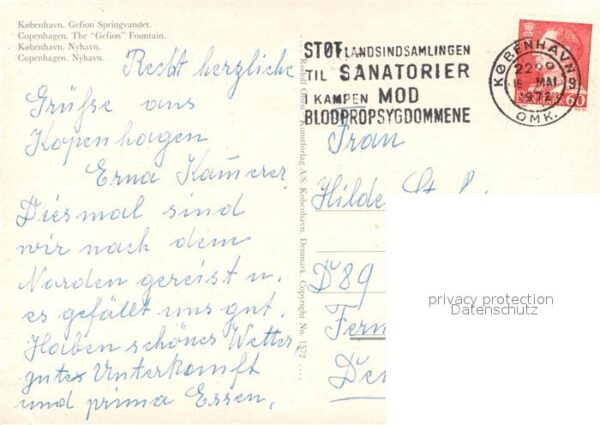 København. Gefion Springvandet.
Copenhagen. The "Gefion" Fountain.
København. Nyhavn.
Copenhagen. Nyhavn.
Recht herzliche
Grüße aus
Kopenhagen
Erna Kamerer.
Diesmal sind
wir nach dem
Norden gereist u.
es gefällt uns gut.
Haben schönes Wetter,
gutes Unterkomft
und prima Essen.
Rudolf Olsen Kunstforlag A/S. København. Denmark. Copyright No. 1572
STØT LANDSINDSAMLINGEN
TIL SANATORIER
I KAMPEN MOD
BLODPROPSYGDOMMENE
KØBENHAVN
2200
MAI
1972
OMK.
60
Frau
Hilde
D 89
privacy protection
Datenschutz